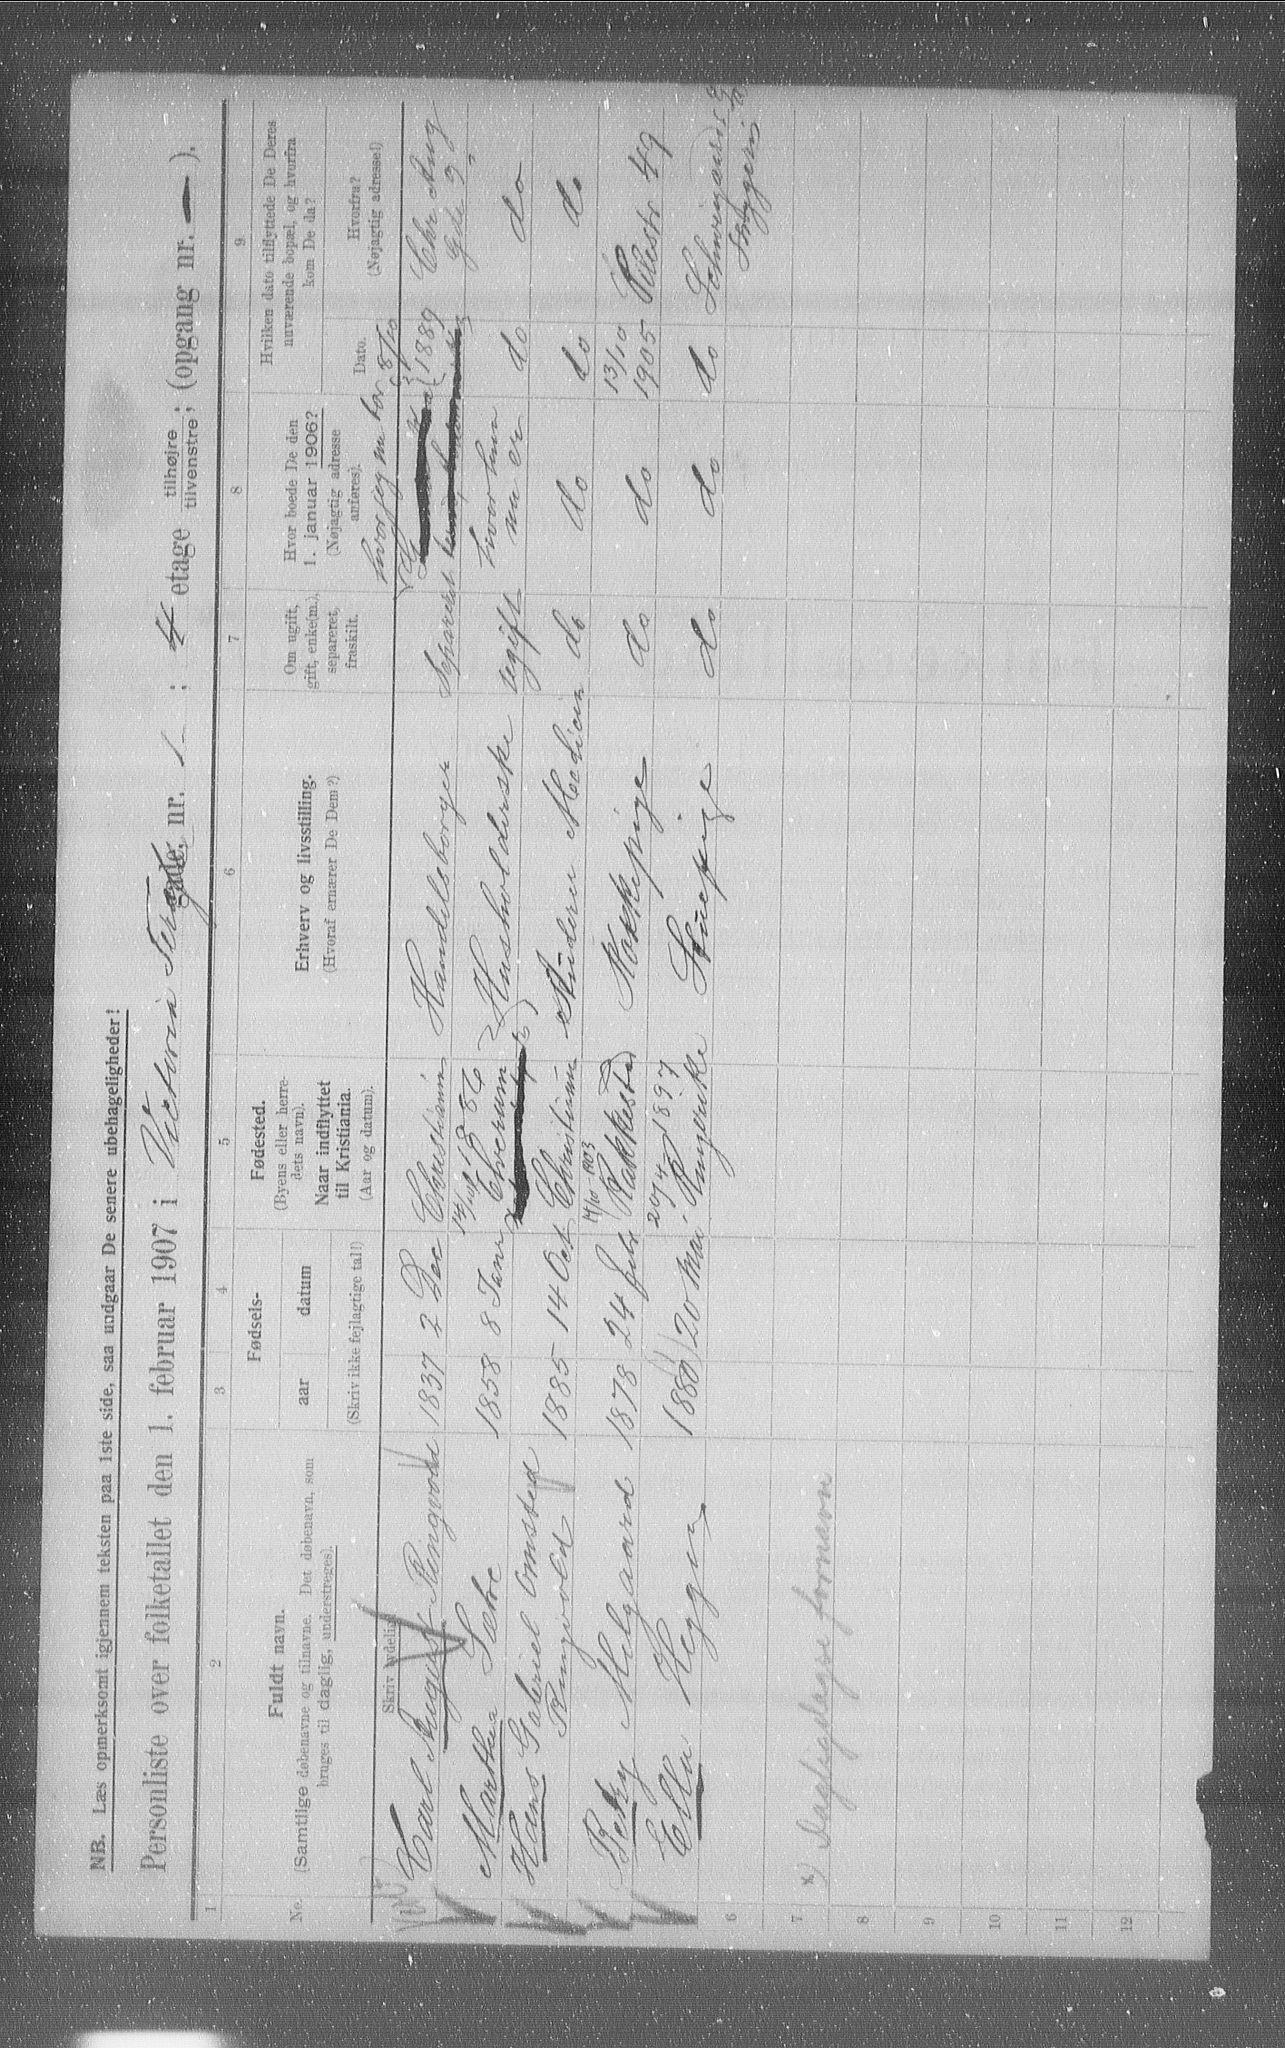 NB. Læs opmerksomt igjennem teksten paa 1ste side, saa undgaar De senere ubehageligheder!
Personliste over folketallet den 1. februar 1907 i Victoria Terasse gade, nr. 1 ; 4 etage tilhøjre tilvenstre; (opgang nr. — ).
1 2 3 4 5 6 7 8 9
No.
Fuldt navn.
(Samtlige døbenavne og tilnavne. Det døbenavn, som
bruges til daglig, understreges).
Skriv tydelig
Fødsels-
aar datum
(Skriv ikke fejlagtige tal!)
Fødested.
(Byens eller herre-
dets navn).
Naar indflyttet
til Kristiania.
(Aar og datum).
Erhverv og livsstilling.
(Hvoraf ernærer De Dem?)
Om ugift,
gift, enke(m.),
separeret,
fraskilt.
Hvor boede De den
1. januar 1906?
(Nøjagtig adresse
anføres).
Hvilken dato tilflyttede De Deres
nuværende bopæl, og hvorfra
kom De da?
Dato.
Hvorfra?
(Nøjagtig adresse!)
hvor jeg nu bor 8/10
Carl August Ringvold 1837 2 Dec Christiania Handelsborger Separeret 1889 Chr Aug
Gde 9
14/10 1886
Martha Sæhre 1858 8 Janr Elverum Husholderske ugift hvor han
nu er do do
Hans Gabriel Omsted
Ringvold 1885 14 Oct Christiania Studerer Medicin do do do do
14/10 1903
Betzy Melgaard 1878 24 febr Rakkestad Kokkepige do do 13/10
1905 Pilestr 49
20/4 1897
Ella Heggen 1880 20 Mai Ringerike Stuepige do do do
6
7
8
9
10
11
12
x) Dagligdagse fornavn